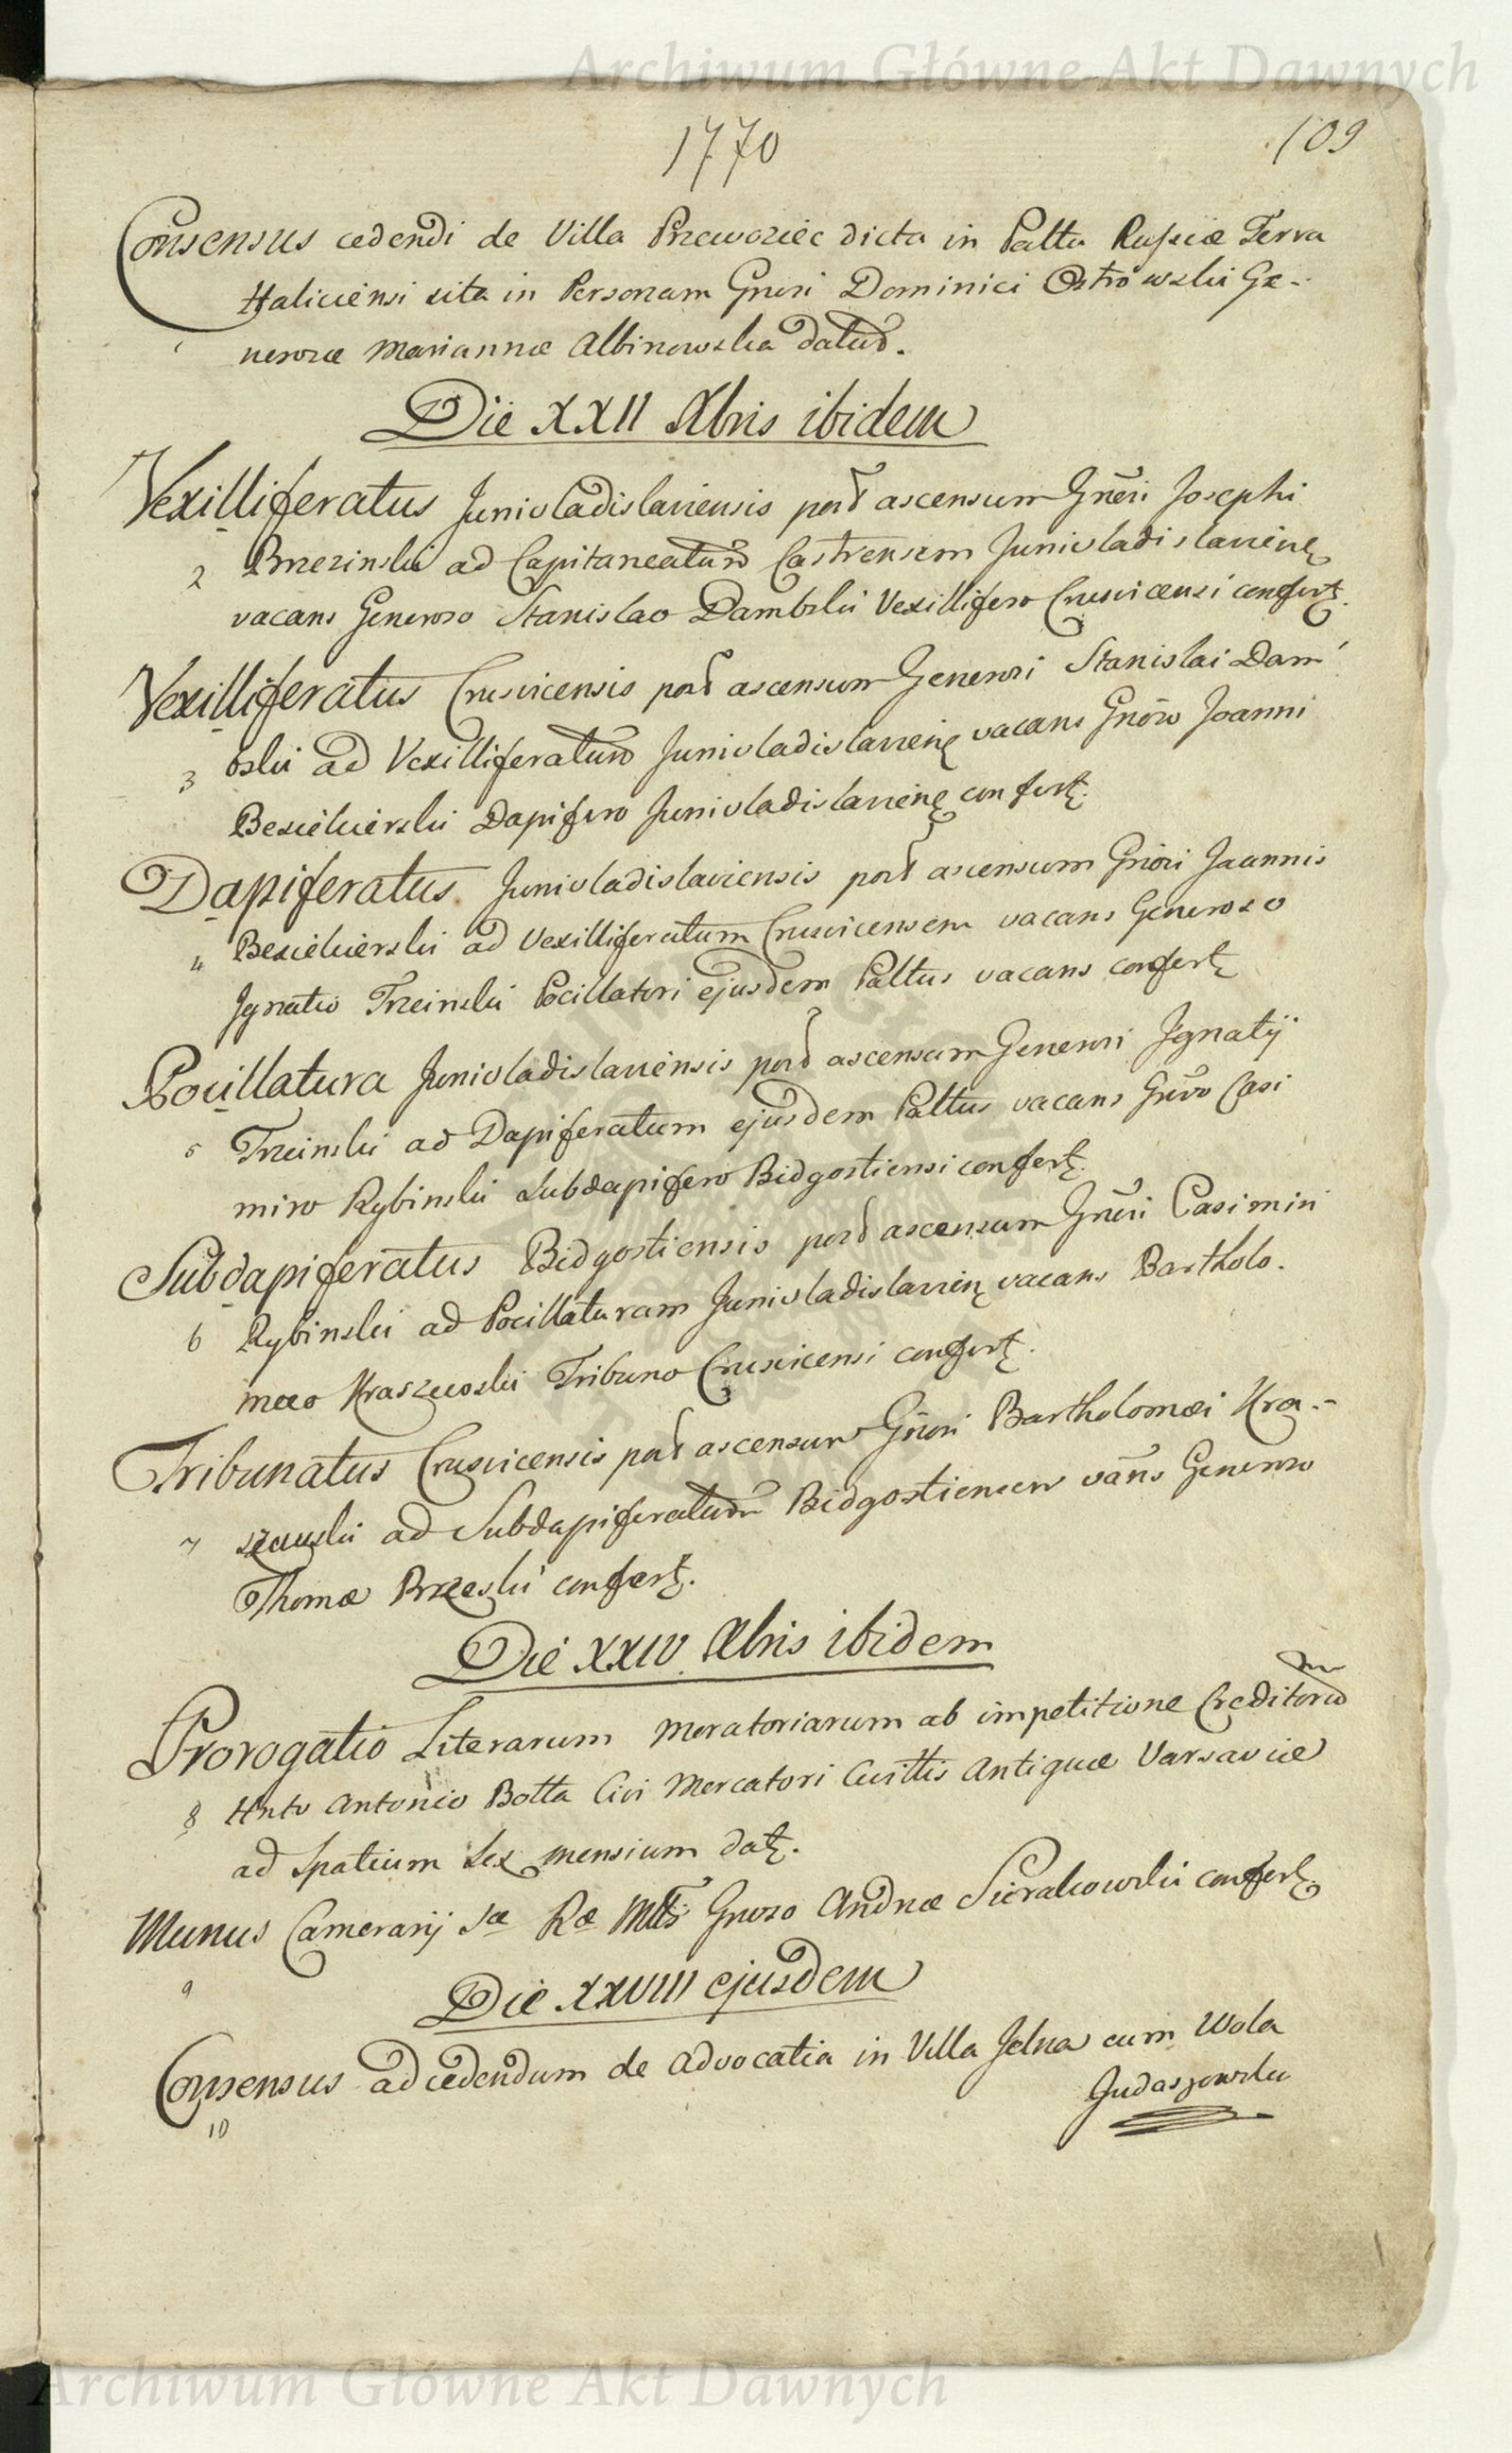 Archiwum Główne Akt Dawnych
1770
109
Consensus cedendi de Villa Przewoziec dicta in Palttu Russiæ Terra
Haliciensi sita in Personam Gnrsi Dominici Ostrowski Ge-
1 nerosæ Mariannæ Albinowska datus.
Die XXII Xbris ibidem
Vexilliferatus Junivladislaviensis post ascensum Gnrsi Josephi
2 Brzezinski ad Capitaneatum Castrensem Junivladislavienę
vacans Generoso Stanislao Dambski Vexillifero Crusvicensi confertę.
Vexilliferatus Crusvicensis post ascensum Generosi Stanislai Dam-
3 bski ad Vexilliferatum Junivladislavienę vacans Gnrso Joanni
Besiekierski Dapifero Junivladislavienę confertę.
Dapiferatus Junivladislaviensis post ascensum Gnrsi Joannis
4 Besiekierski ad Vexilliferatum Crusvicensem vacans Generoso
Ignatio Trzcinski Pocillatori ejusdem Palttus vacans confertę
Pocillatura Junivladislaviensis post ascensum Generosi Ignatij
5 Trzcinski ad Dapiferatum ejusdem Palttus vacans Gnrso Casi
miro Rybinski Subdapifero Bidgostiensi confertę.
Subdapiferatus Bidgostiensis post ascensum Gnrsi Casimiri
6 Rybinski ad Pocillaturam Junivladislavienę vacans Bartholo-
mæo Kraszewski Tribuno Crusvicensi confertę.
Tribunatus Crusvicensis post ascensum Gnrsi Bartholomæi Kra-
7 szewski ad Subdapiferatum Bidgostiensem vans Generoso
Thomæ Brzeski confertę.
Die XXIV Xbris ibidem
Prorogatio Literarum Moratoriarum ab impetitione Creditorum
8 Hnto Antonio Botta Civi Mercatori Cvittis Antiquæ Varsaviæ
ad spatium sex mensium datę.
Munus Camerarij Sæ Ræ Mttis Gnroso Andreæ Sierakowski confertę.
9
Die XXVIII ejusdem
Consensus ad cedendum de Advocatia in Villa Jelna cum Wola
10
Judaszowska
Archiwum Główne Akt Dawnych